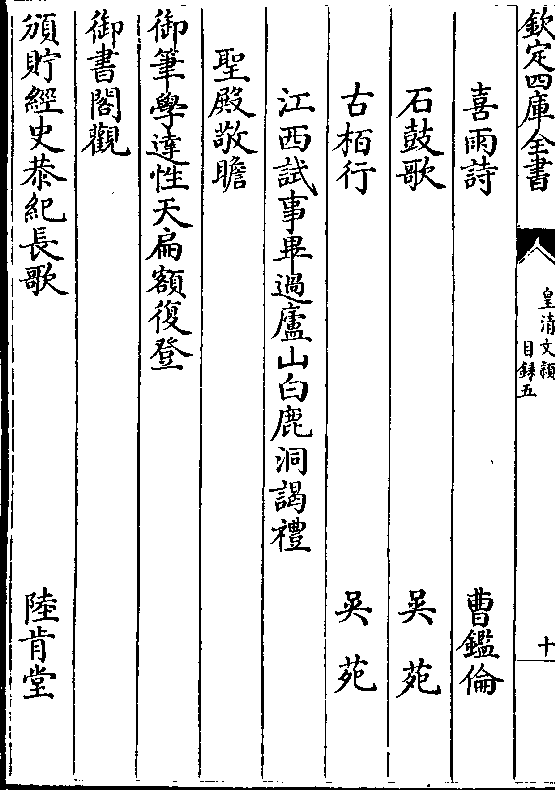 欽定四庫全書
皇清文穎
目錄五
十
喜雨詩 曹鑑倫
石鼓歌 吳苑
古栢行 吳苑
江西試事畢過廬山白鹿洞謁禮
聖殿敬瞻
御筆學達性天扁額復登
御書閣觀
頒貯經史恭紀長歌 陸肯堂